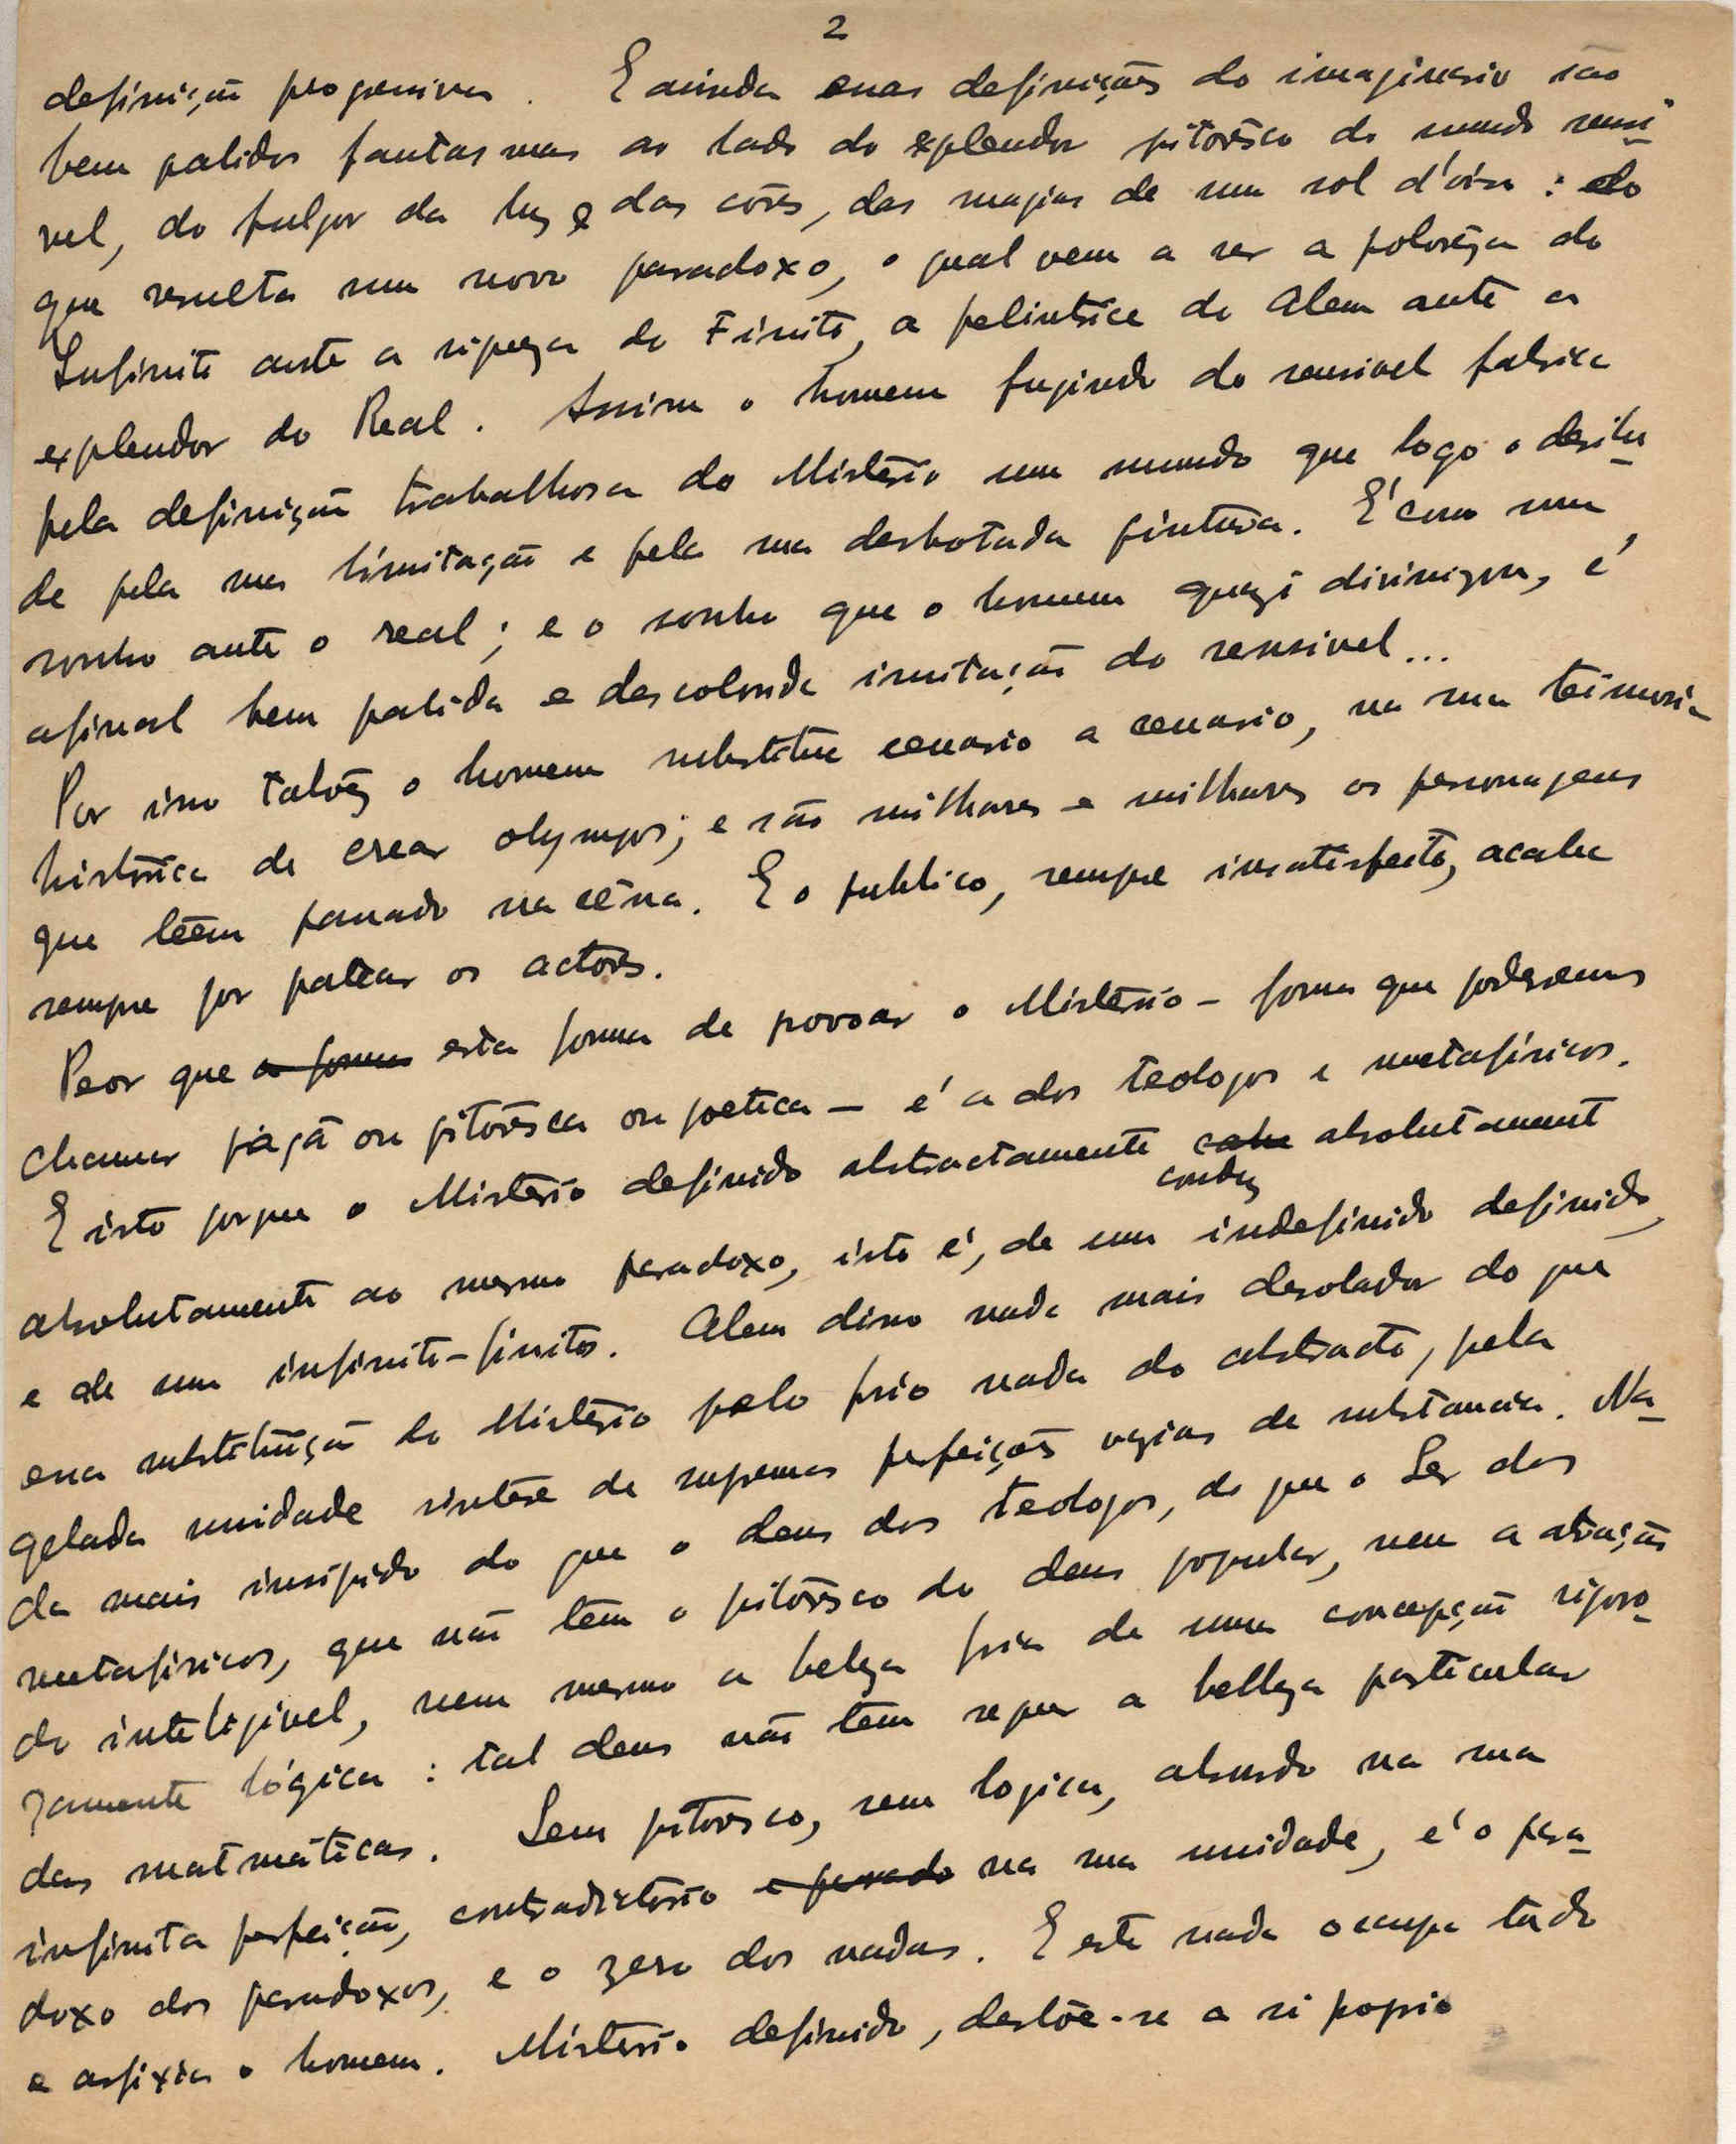 2
definição progressiva. E ainda essas definições do imaginario são
bem palidos fantasmas ao lado do explendor pitorêsco do mundo sensi-
vel, do fulgor da luz e das côres, das magias de um sol d'oiro: do
que resulta um novo paradoxo, o qual vem a ser a pobrêza do
Infinito ante a riqueza do Finito, a pelintrice do Alem ante o
explendor do Real. Assim o homem fugindo do sensivel fabrica
pela definição trabalhosa do Mistério um mundo que logo o desilu-
de pela sua limitação e pela sua desbotada pintura. É como um
sonho ante o real; e o sonho que o homem quazi divinizou, é,
afinal bem palida e descolorida imitação do sensivel...
Por isso talvêz o homem substitue cenario a cenario, na sua teimosia
histórica de crear olympos; e são milhares e milhares os personagens
que têem passado na cêna. E o publico, sempre insatisfeito, acaba
sempre por patear os actores.
Peor que a forma esta forma de povoar o Mistério – forma que poderemos
chamar pagã ou pitorêsca ou poetica – é a dos teologos e metafísicos.
E isto porque o Mistério definido abstractamente cabe absolutament
conduz
absolutamente ao mesmo paradoxo, isto é, de um indefinido definido,
e de um infinito-finito. Alem disso nada mais desolador do que
essa substituição do Mistério pelo frio nada do abstracto, pela
gelada unidade sintese de supremas perfeições vazias de substancia. Na-
da mais insípido do que o deus dos teologos, do que o Ser dos
metafísicos, que não têm o pitorêsco do deus popular, nem a atração
do inteligivel, nem mesmo a beleza fria de uma concepção rigoro-
zamente lógica: tal deus não tem sequer a belleza particular
das matmáticas. Sem pitoresco, sem logica, absurdo na sua
infinita perfeição, contradictório e parado na sua unidade, é o para-
doxo dos paradoxos, e o zero dos nadas. E este nada ocupa tudo
e asfixia o homem. Mistério definido, destróe-se a si poprio